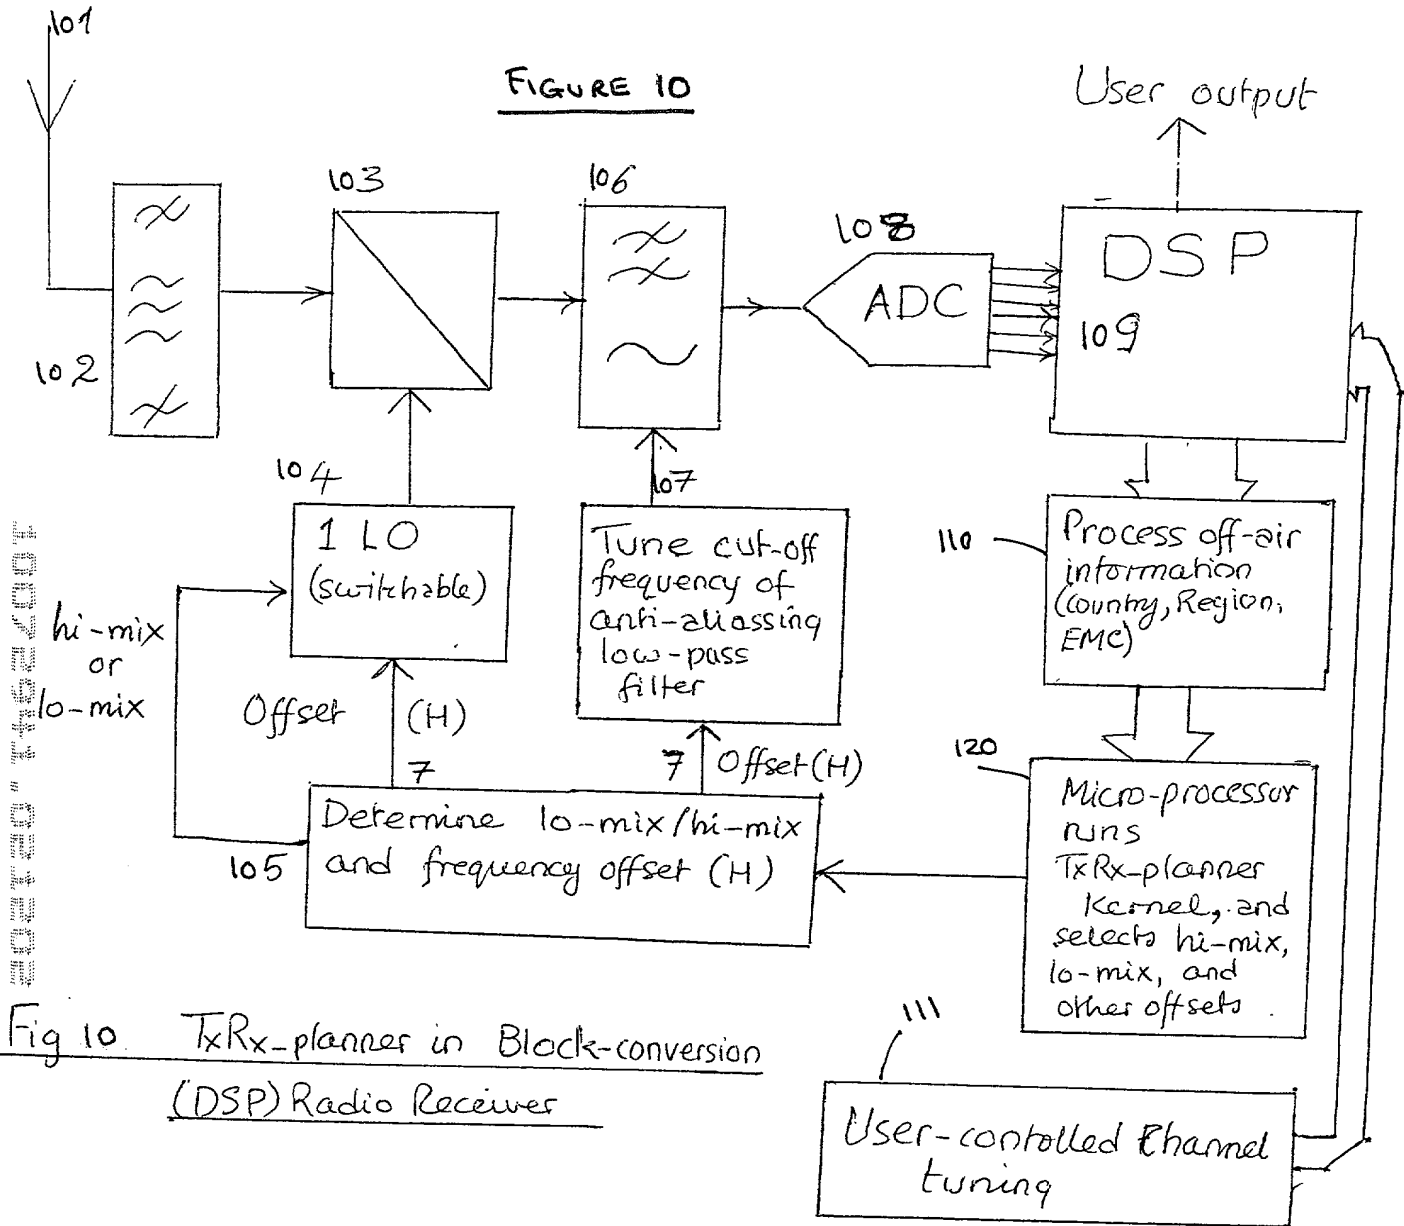 101
FIGURE 10
User output
103
106
108
DSP
ADC
109
102
104
107
1 LO
(switchable)
Tune cut-off
frequency of
anti-aliassing
low-pass
filter
110
Process off-air
information
(Country, Region,
EMC)
hi-mix
or
lo-mix
Offset (H)
7
7 Offset (H)
120
Micro-processor
runs
TxRx-planner
Kernel, and
selects hi-mix,
lo-mix, and
other offsets.
105
Determine lo-mix/hi-mix
and frequency offset (H)
10072941.021202
Fig 10 TxRx-planner in Block-conversion
(DSP) Radio Receiver
111
User-contolled Channel
tuning